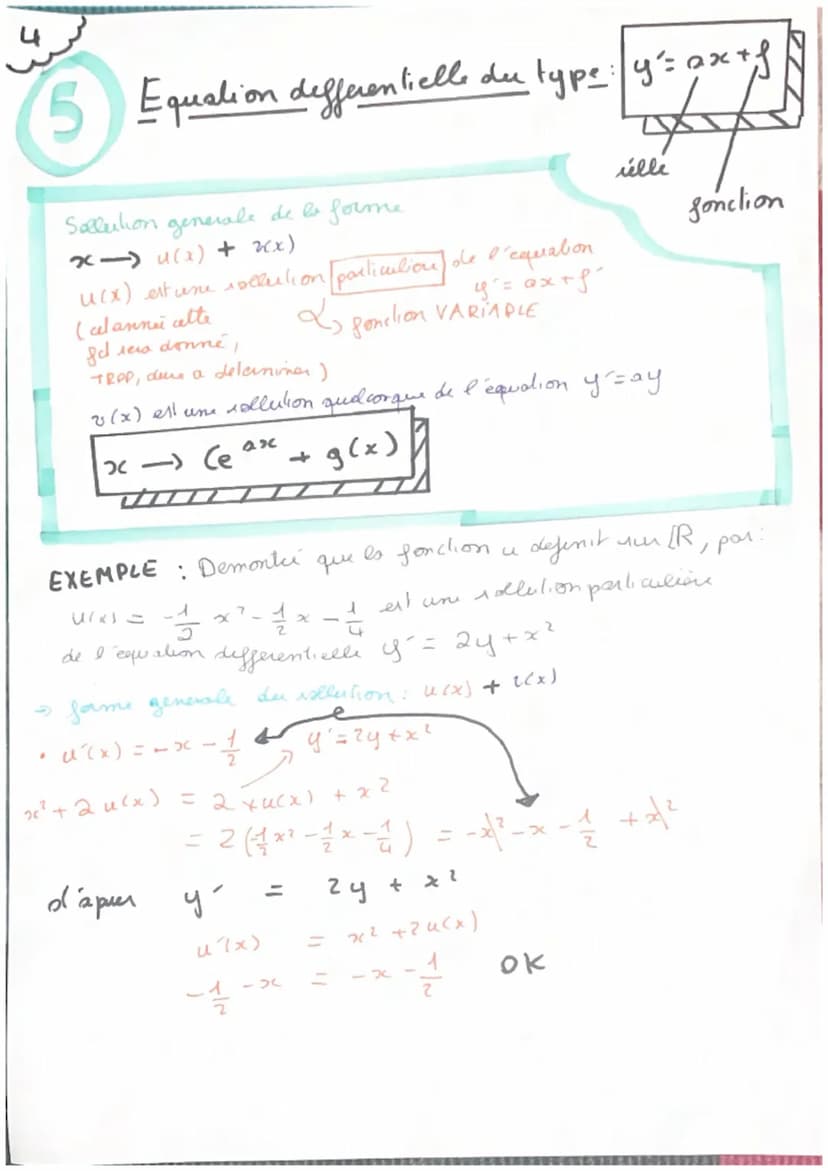 4
5 Equation defferentielle du type: y' = ax + f
réelle
fonction
Sollution generale de la forme
x → u(x) + v(x)
u(x) est une sollution particuliere de l'equation
y' = ax + f
(cet année cette ↳ fonction VARIABLE
fct sera donné,
TROP, dure a determiner)
v(x) est une sollution quelconque de l'équation y' = ay
x → Ce^ax + g(x)
EXEMPLE : Demontré que la fonction u definit sur ℝ, par:
u(x) = -1/2 x² - 1/2 x - 1/4 est une sollution particulière
de l'equation differentielle y' = 2y + x²
→ forme generale du sollution: u(x) + v(x)
• u'(x) = -x - 1/2 y' = 2y + x²
x² + 2u(x) = 2 × u(x) + x²
= 2(-1/2 x² - 1/2 x - 1/4) = -x² - x - 1/2 + x²
d'apres y' = 2y + x²
u'(x) = x² + 2u(x)
-1/2 - x = -x - 1/2 OK